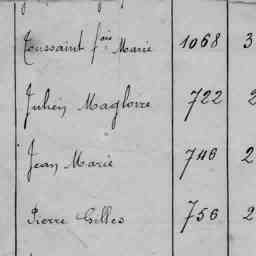 Toussaint fois Marie 1068 3
Julien Magloire 722 2
Jean Marie 746 2
Pierre Gilles 756 2